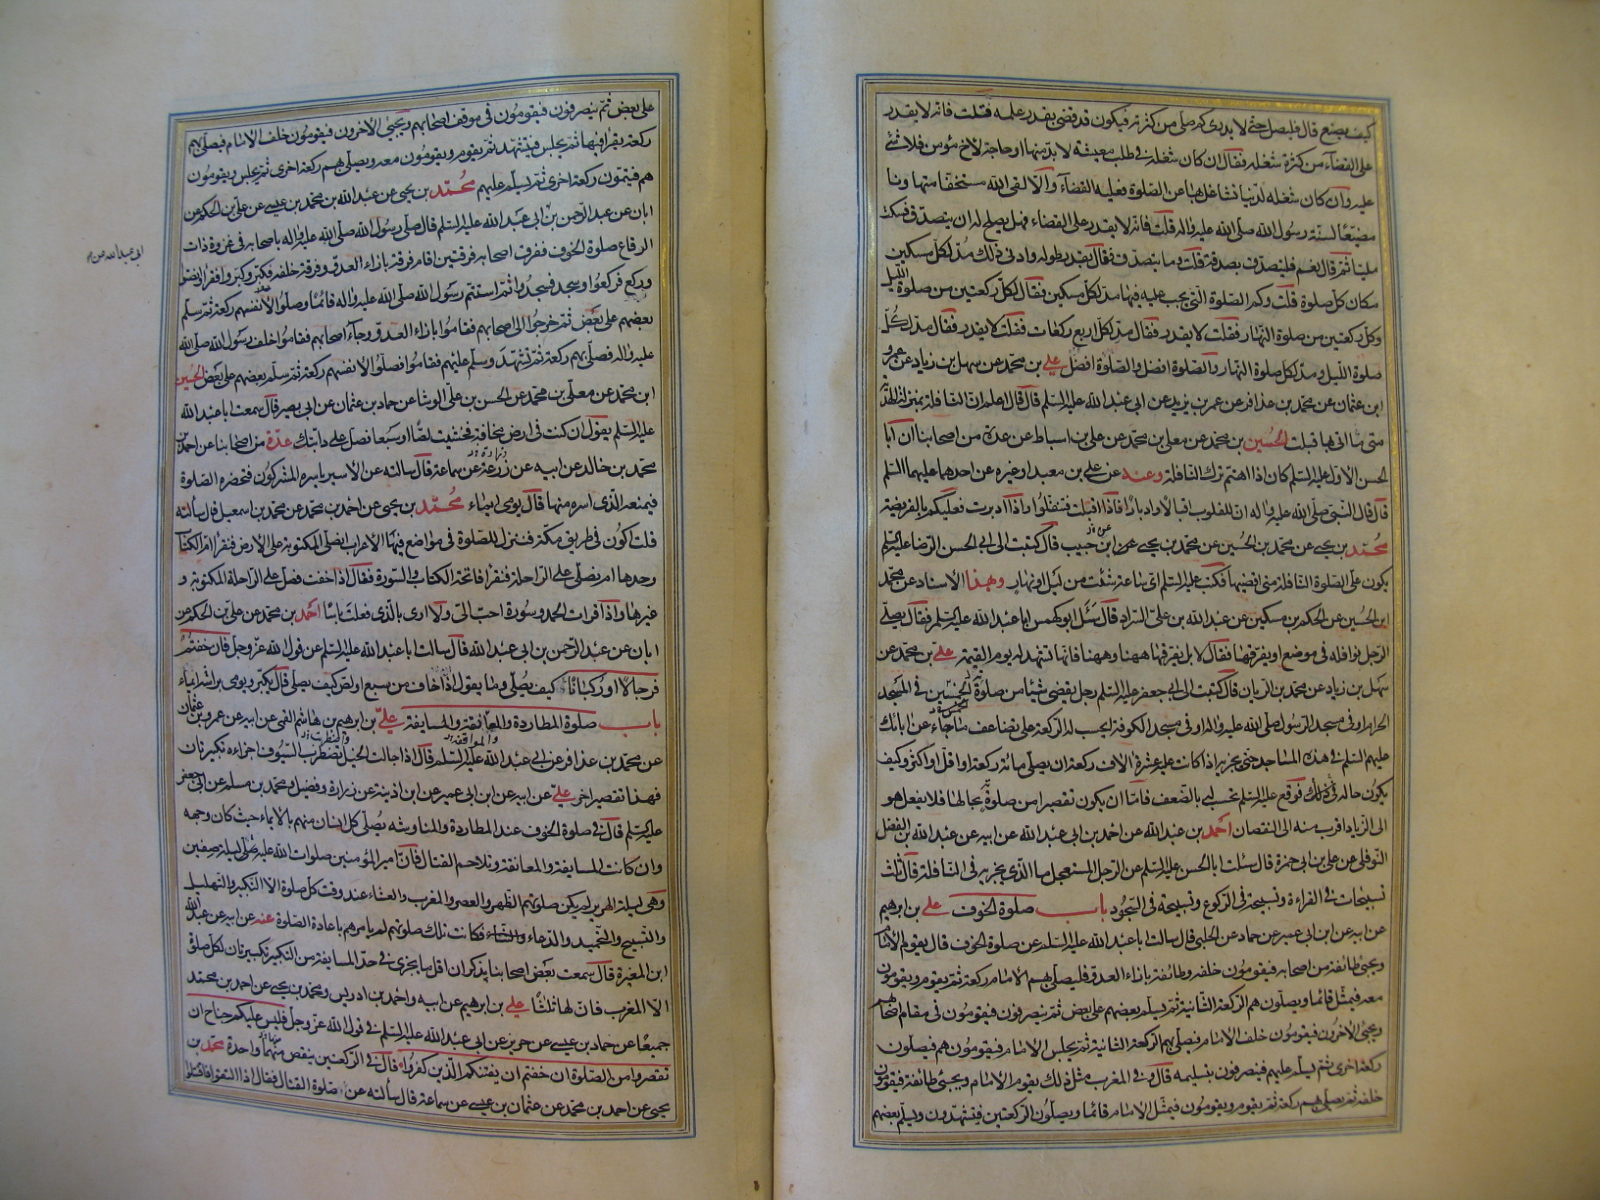 كيف يصنع قال فليصل حتى لا يدرى كم صلى من كثرته فيكون قد قضى بقدر علمه قلت فانه لا يقدر
على القضاء من كثرة شغله فقال ان كان شغله في طلب معيشة لا بد منها او حاجة لاخ مؤمن فلا شئ
عليه وان كان شغله لدنيا تشاغل بها عن الصلوة فعليه القضاء والا لقى الله مستخفا متهاونا
مضيعا لسنة رسول الله صلى الله عليه واله قلت فانه لا يقدر على القضاء فهل يصلح له ان يتصدق فسكت
مليا ثم قال نعم فليتصدق بصدقة قلت وما يتصدق فقال بقدر طوله وادنى ذلك مد لكل مسكين
مكان كل صلوة قلت وكم الصلوة التى يجب عليه فيها مد لكل مسكين فقال لكل ركعتين من صلوة الليل
وكل ركعتين من صلوة النهار فقلت لا يقدر فقال مد لكل اربع ركعات فقلت لا يقدر فقال مد لكل
صلوة الليل ومد لكل صلوة النهار والصلوة افضل والصلوة افضل على بن محمد عن سهل بن زياد عن عمرو
ابن عثمان عن محمد بن عذافر عن عمر بن يزيد عن ابى عبد الله عليه السلم قال قال اعلم ان النافلة بمنزلة الهدية
متى ما اتى بها قبلت الحسين بن محمد عن معلى بن محمد عن على بن اسباط عن عدة من اصحابنا ان ابا
الحسن الاول عليه السلم كان اذا اهتم ترك النافلة وعنه عن على بن معبد او غيره عن احدهما عليهما السلم
قال قال النبى صلى الله عليه واله ان للقلوب اقبالا وادبارا فاذا اقبلت فتنفلوا واذا ادبرت فعليكم بالفريضة
محمد بن يحيى عن محمد بن الحسين عن محمد بن يحيى عن ابن حبيب قال كتبت الى ابى الحسن الرضا عليه السلم
يكون على الصلوة النافلة متى اقضيها فكتب عليه السلم اى ساعة شئت من ليل او نهار وبهذا الاسناد عن محمد
ابن الحسين عن الحكم بن مسكين عن عبد الله بن على السراد قال سئل ابو كهمس ابا عبد الله عليه السلم فقال يصلى
الرجل نوافله في موضع او يفرقها فقال لا بل يفرقها ههنا وههنا فانها تشهد له يوم القيمة على بن محمد عن
سهل بن زياد عن محمد بن الريان قال كتبت الى ابى جعفر عليه السلم رجل يقضى شيئا من صلوة الخمسين في المسجد
الحرام او في مسجد الرسول صلى الله عليه واله او في مسجد الكوفة ايحسب له الركعة على تضاعف ما جاء عن ابائك
عليهم السلم في هذه المساجد حتى يجزيه اذا كانت عليه عشرة الاف ركعة ان يصلى مائة ركعة او اقل او اكثر وكيف
يكون حاله في ذلك فوقع عليه السلم يحسب له بالضعف فاما ان يكون تقصيرا من صلوة بحالها فلا يفعل هو
الى الزيادة اقرب منه الى النقصان احمد بن عبد الله عن احمد بن ابى عبد الله عن ابيه عن عبد الله بن الفضل
النوفلى عن على بن ابى حمزة قال سئلت ابا الحسن عليه السلم عن الرجل المستعجل ما الذى يجزيه في النافلة قال ثلث
تسبيحات في القراءة وتسبيحة في الركوع وتسبيحة في السجود باب صلوة الخوف على بن ابراهيم
عن ابيه عن ابن ابى عمير عن حماد عن الحلبى قال سالت ابا عبد الله عليه السلم عن صلوة الخوف قال يقوم الامام
ويجئ طائفة من اصحابه فيقومون خلفه وطائفة بازاء العدو فيصلى بهم الامام ركعة ثم يقوم ويقومون
معه فيمثل قائما ويصلون هم الركعة الثانية ثم يسلم بعضهم على بعض ثم ينصرفون فيقومون في مقام اصحابهم
ويجئ الاخرون فيقومون خلف الامام فيصلى بهم الركعة الثانية ثم يجلس الامام فيقومون هم فيصلون
ركعة اخرى ثم يسلم عليهم فينصرفون بتسليمه قال وفي المغرب مثل ذلك يقوم الامام ويجئ طائفة فيقومون
خلفه ثم يصلى بهم ركعة ثم يقوم ويقومون فيمثل الامام قائما ويصلون الركعتين فيتشهدون ويسلم بعضهم
على بعض ثم ينصرفون فيقومون في موقف اصحابهم ويجئ الاخرون فيقومون خلف الامام فيصلى بهم
ركعة يقرا فيها ثم يجلس فيتشهد ثم يقوم ويقومون معه ويصلى بهم ركعة اخرى ثم يجلس ويقومون
هم فيتمون ركعة اخرى ثم يسلم عليهم محمد بن يحيى عن عبد الله بن محمد بن عيسى عن على بن الحكم عن
ابان عن عبد الرحمن بن ابى عبد الله عليه السلم قال صلى رسول الله صلى الله عليه واله باصحابه في غزوة ذات
ابى عبد الله عن
الرقاع صلوة الخوف ففرق اصحابه فرقتين اقام فرقة بازاء العدو وفرقة خلفه فكبر وكبروا فقرا وانصتوا
وركع فركعوا وسجد فسجدوا ثم استتم رسول الله صلى الله عليه واله قائما وصلوا لانفسهم ركعة ثم سلم
بعضهم على بعض ثم خرجوا الى اصحابهم فقاموا بازاء العدو وجاء اصحابهم فقاموا خلف رسول الله صلى الله
عليه واله فصلى بهم ركعة ثم تشهد وسلم عليهم فقاموا فصلوا لانفسهم ركعة ثم سلم بعضهم على بعض الحسين
ابن محمد عن معلى بن محمد عن الحسن بن على الوشا عن حماد بن عثمان عن ابى بصير قال سمعت ابا عبد الله
عليه السلم يقول ان كنت في ارض مخافة فخشيت لصا او سبعا فصل على دابتك عدة من اصحابنا عن احمد بن
محمد بن خالد عن ابيه عن زرعة عن سماعة قال سالته عن الاسير ياسره المشركون فتحضره الصلوة
فيمنعه الذى اسره منها قال يومى ايماء محمد بن يحيى عن احمد بن محمد عن محمد بن اسمعيل قال سالته
قلت اكون في طريق مكة فننزل للصلوة في مواضع فيها الاعراب ايصلى المكتوبة على الارض فنقرا ام الكتاب
وحدها ام يصلى على الراحلة فنقرا فاتحة الكتاب والسورة فقال اذا خفت فصل على الراحلة المكتوبة و
غيرها واذا قرات الحمد وسورة احب الى ولا ارى بالذى فعلت باسا احمد بن محمد عن على بن الحكم عن
ابان عن عبد الرحمن بن ابى عبد الله قال سالت ابا عبد الله عليه السلم عن قول الله عز وجل فان خفتم
فرجالا او ركبانا كيف يصلى وما يقول اذا خاف من سبع او لص كيف يصلى قال يكبر ويومى براسه ايماء
باب صلوة المطاردة والمواقفة والمسايفة على بن ابراهيم بن هاشم القمى عن ابيه عن عمرو بن عثمان
عن محمد بن عذافر عن ابى عبد الله عليه السلم قال اذا جالت الخيل تضطرب السيوف اجزاه تكبيرتان
فهذا تقصير اخر على عن ابيه عن ابن ابى عمير عن ابن اذينة عن زرارة وفضيل ومحمد بن مسلم عن ابى جعفر
عليه السلم قال في صلوة الخوف عند المطاردة والمناوشة يصلى كل انسان منهم بالايماء حيث كان وجهه
وان كانت المسايفة والمعانقة وتلاحم القتال فان امير المؤمنين صلوات الله عليه صلى ليلة صفين
وهى ليلة الهرير لم يكن صلوتهم الظهر والعصر والمغرب والعشاء عند وقت كل صلوة الا التكبير والتهليل
والتسبيح والتحميد والدعاء فكانت تلك صلوتهم لم يامرهم باعادة الصلوة عنه عن ابيه عن عبد الله
ابن المغيرة قال سمعت بعض اصحابنا يذكر ان اقل ما يجزى في حد المسايفة من التكبير تكبيرتان لكل صلوة
الا المغرب فان لها ثلثا على بن ابراهيم عن ابيه واحمد بن ادريس ومحمد بن يحيى عن احمد بن محمد
جميعا عن حماد بن عيسى عن حريز عن ابى عبد الله عليه السلم في قول الله عز وجل فليس عليكم جناح ان
تقصروا من الصلوة ان خفتم ان يفتنكم الذين كفروا قال في الركعتين ينقص منهما واحدة محمد بن
يحيى عن احمد بن محمد عن عثمان بن عيسى عن سماعة قال سالته عن صلوة القتال فقال اذا التقوا فاقتتلوا